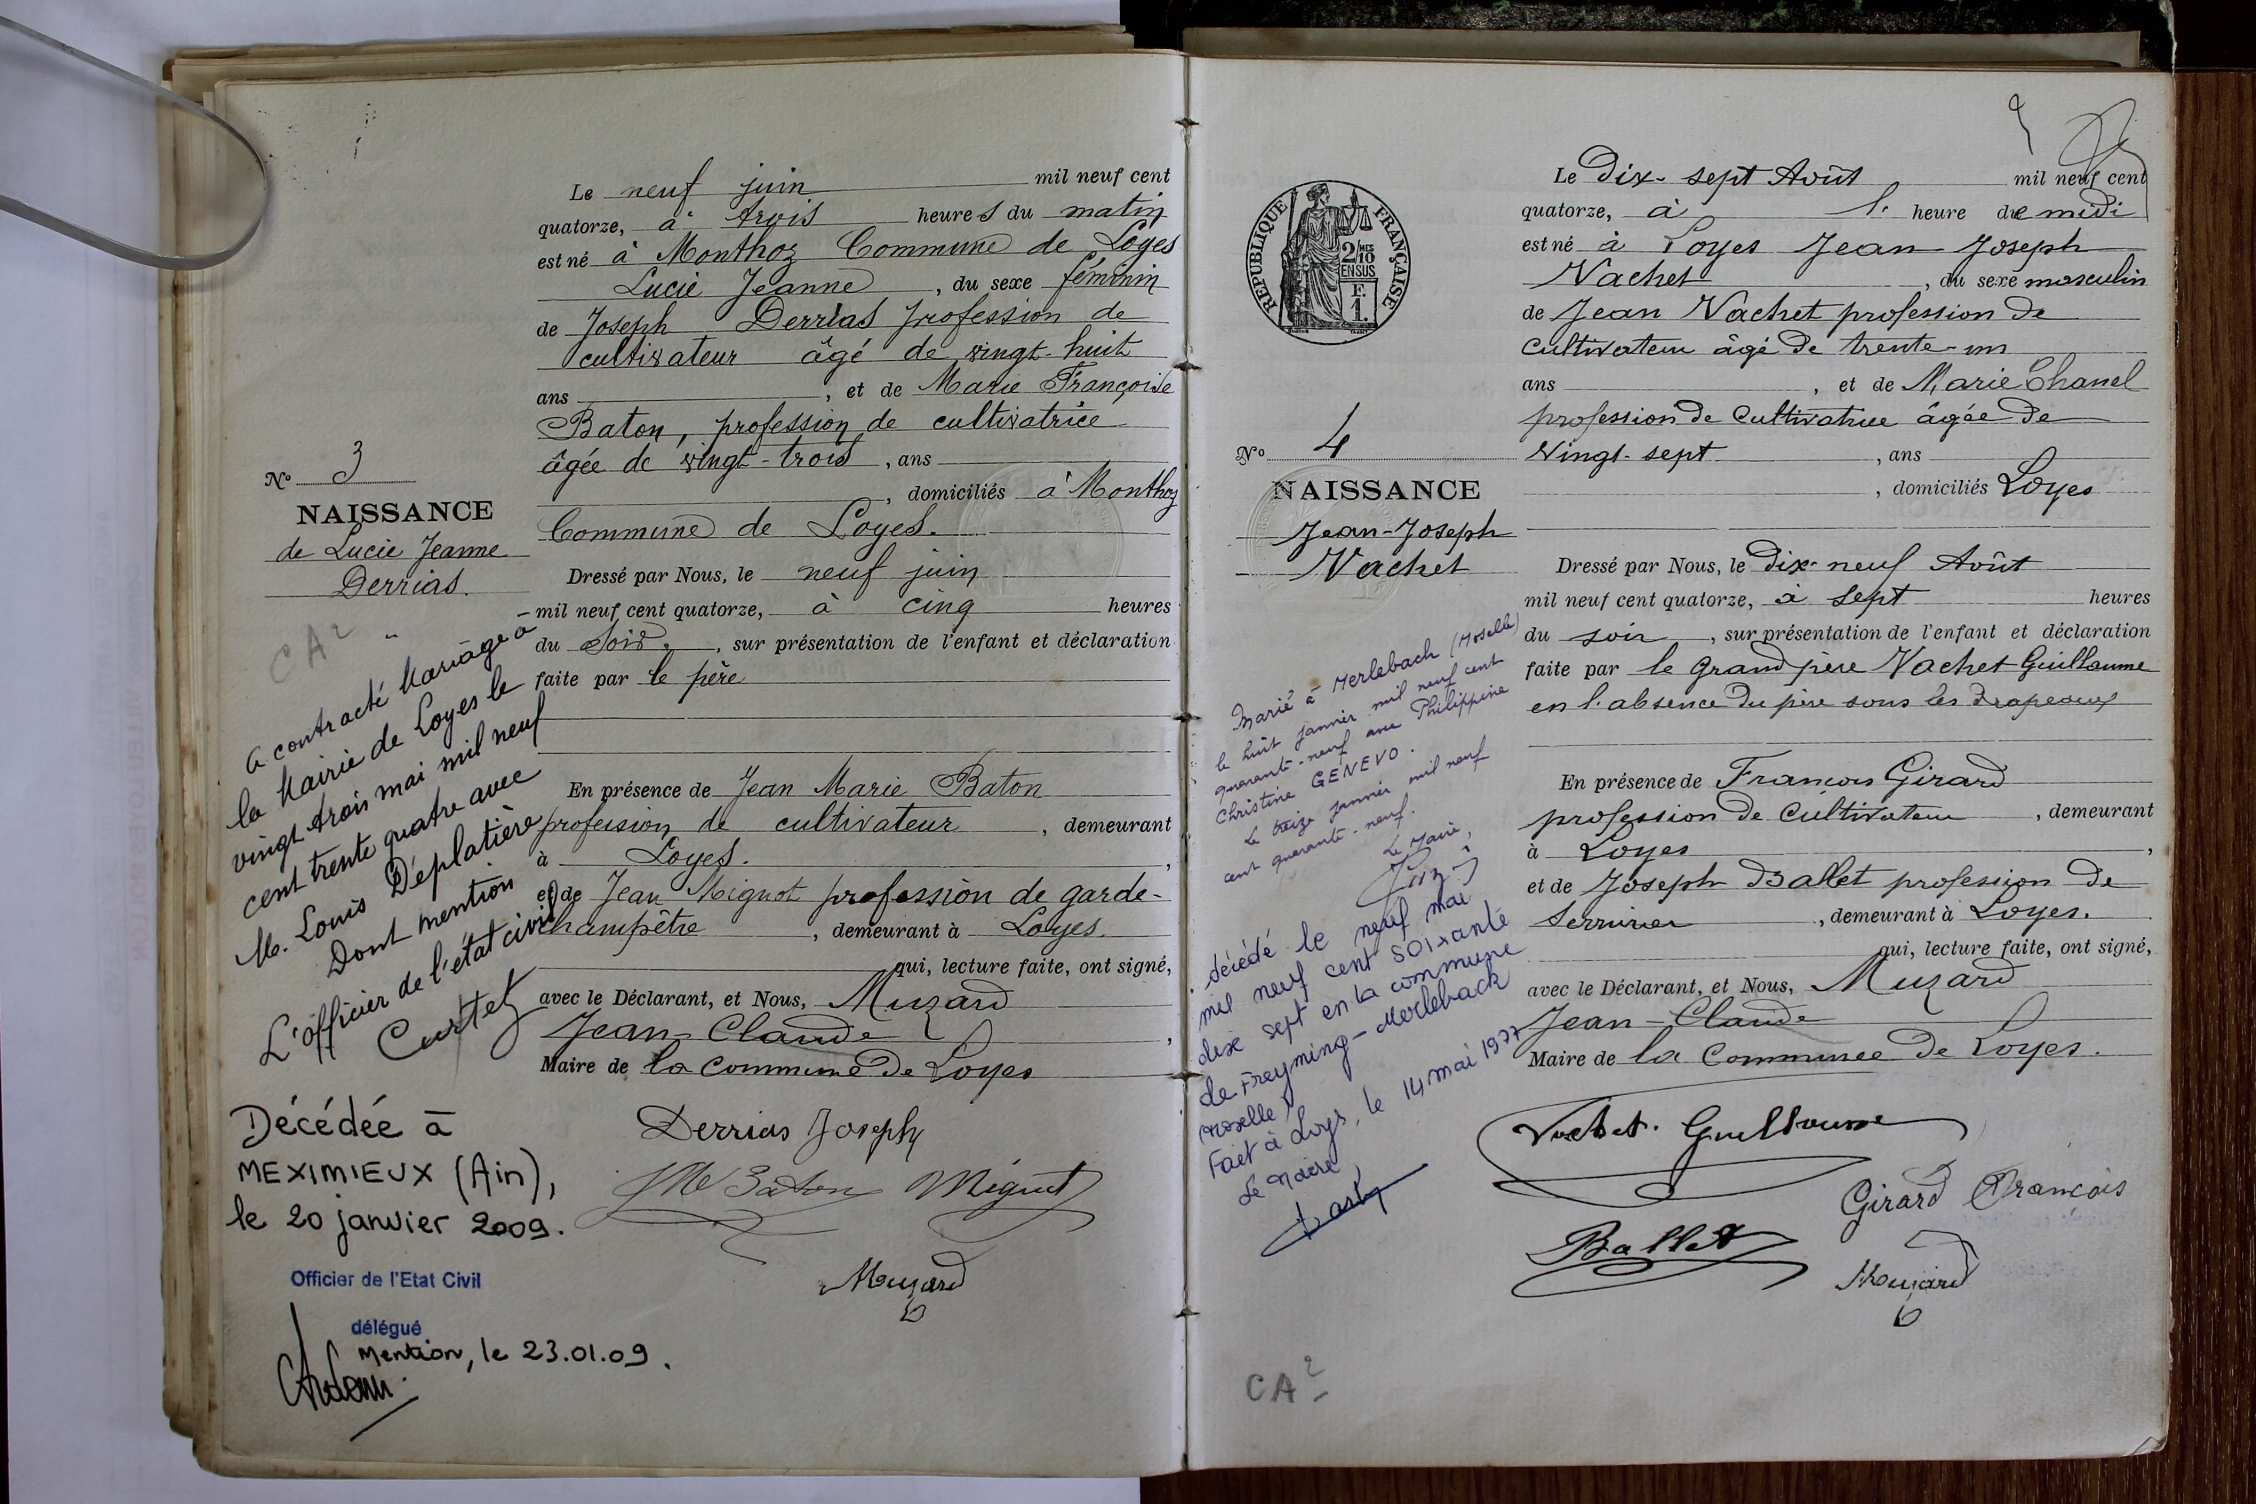 Le neuf juin mil neuf cent
quatorze, à trois heures du matin
est né à Monthoz Commune de Loyes
Lucie Jeanne, du sexe féminin
de Joseph Derrias profession de
cultivateur âgé de vingt-huit
ans, et de Marie Françoise
Baton, profession de cultivatrice
âgée de vingt-trois, ans
, domiciliés à Monthoz
Commune de Loyes.
Dressé par Nous, le neuf juin
mil neuf cent quatorze, à cinq heures
du soir, sur présentation de l'enfant et déclaration
faite par le père
En présence de Jean Marie Baton
profession de cultivateur, demeurant
à Loyes.,
et de Jean Mignot profession de garde-
champêtre, demeurant à Loyes.
qui, lecture faite, ont signé,
avec le Déclarant, et Nous, Muzard
Jean-Claude,
Maire de la commune de Loyes
Derrias Joseph
JM Baton Mignot
Muzard
No 3
NAISSANCE
de Lucie Jeanne
Derrias.
CA2
a contracté Mariage à
la Mairie de Loyes le
vingt trois mai mil neuf
cent trente quatre avec
M. Louis Déplatière
Dont mention
L'officier de l'état civil
Curtet
Décédée à
MEXIMIEUX (Ain),
le 20 janvier 2009.
Officier de l'Etat Civil
délégué
Mention, le 23.01.09.
RÉPUBLIQUE FRANÇAISE
2/10 MES
EN SUS
F.
1.
Le Dix-sept Août mil neuf cent
quatorze, à 1. heure de midi
est né à Loyes Jean Joseph
Vachet, du sexe masculin
de Jean Vachet profession de
cultivateur âgé de trente-un
ans, et de Marie Chanel
profession de cultivatrice âgée de
Vingt-sept, ans
, domiciliés Loyes
Dressé par Nous, le Dix-neuf Août
mil neuf cent quatorze, à sept heures
du soir, sur présentation de l'enfant et déclaration
faite par le Grand père Vachet Guillaume
en l'absence du père sous les drapeaux
En présence de François Girard
profession de cultivateur, demeurant
à Loyes,
et de Joseph Ballet profession de
Serrurier, demeurant à Loyes.
qui, lecture faite, ont signé,
avec le Déclarant, et Nous, Muzard
Jean-Claude
Maire de la Commune de Loyes.
Vachet. Guillaume
Girard François
Ballet
Muzard
No 4
NAISSANCE
Jean-Joseph
Vachet
Marié à Merlebach (Moselle)
le huit janvier mil neuf cent
quarante-neuf avec Philippine
Christine GENEVO.
Le treize janvier mil neuf
cent quarante-neuf.
Le Maire,
décédé le neuf mai
mil neuf cent soixante
dix sept en la commune
de Freyming-Merleback
(Moselle)
Fait à Loyes, le 14 mai 1977
Le Maire,
CA2